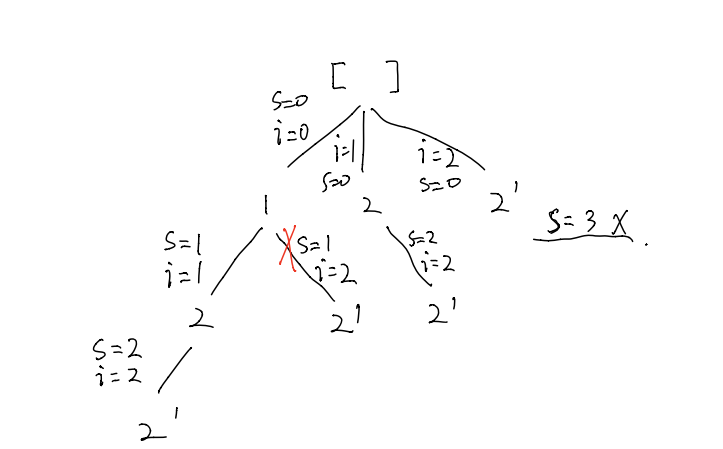 [ ]
s=0
i=0
i=1
s=0
i=2
s=0
1
2
2'
s=3 X.
s=1
i=1
s=1
i=2
s=2
i=2
2
2'
2'
s=2
i=2
2'